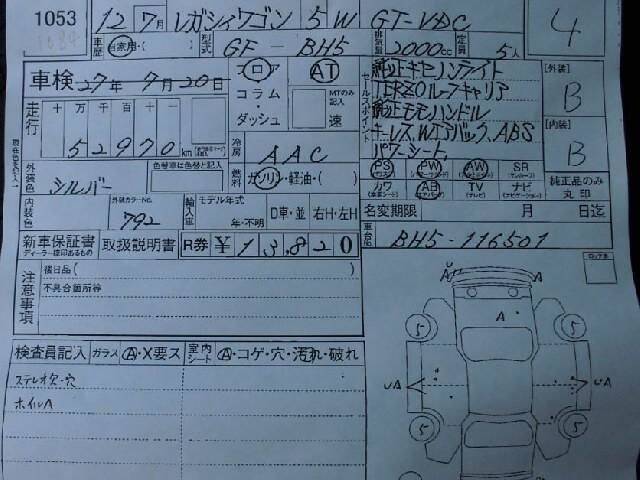 1053 12年7月 レガシィワゴン 5W GT-VDC 4
車歴 自家用・( ) 型式 GF-BH5 排気量 2000cc 定員 5人
車検 27年 7月20日 フロア AT 純正キセノンライト [外装]
コラム MTのみ記入 セールスポイント TERZOルーフキャリア B
走行 十万 万 千 百 十 一 ・ 純正モモハンドル
52970 km ダッシュ 速 キーレス、Wエアバック、ABS [内装]
冷房 AAC パワーシート B
外装色 シルバー 色替車は色替と記入 燃料 ガソリン・軽油・( ) PS PW AW SR
カワ AB TV ナビ 純正品のみ丸印
内装色 内装カラーNo. 792 輸入車 モデル年式 年・不明 D車・並 右H・左H 名変期限 月 日迄
新車保証書 ディーラー捺印あるもの 取扱説明書 R券 ¥13,820 車台No. BH5-116501
注意事項 後日品( )
不具合箇所等
A A
A
5 5
検査員記入 ガラス A・X要ス 室内シート A・コゲ・穴・汚れ・破れ
ステレオ欠-穴 UA UA
ホイルA
5 5